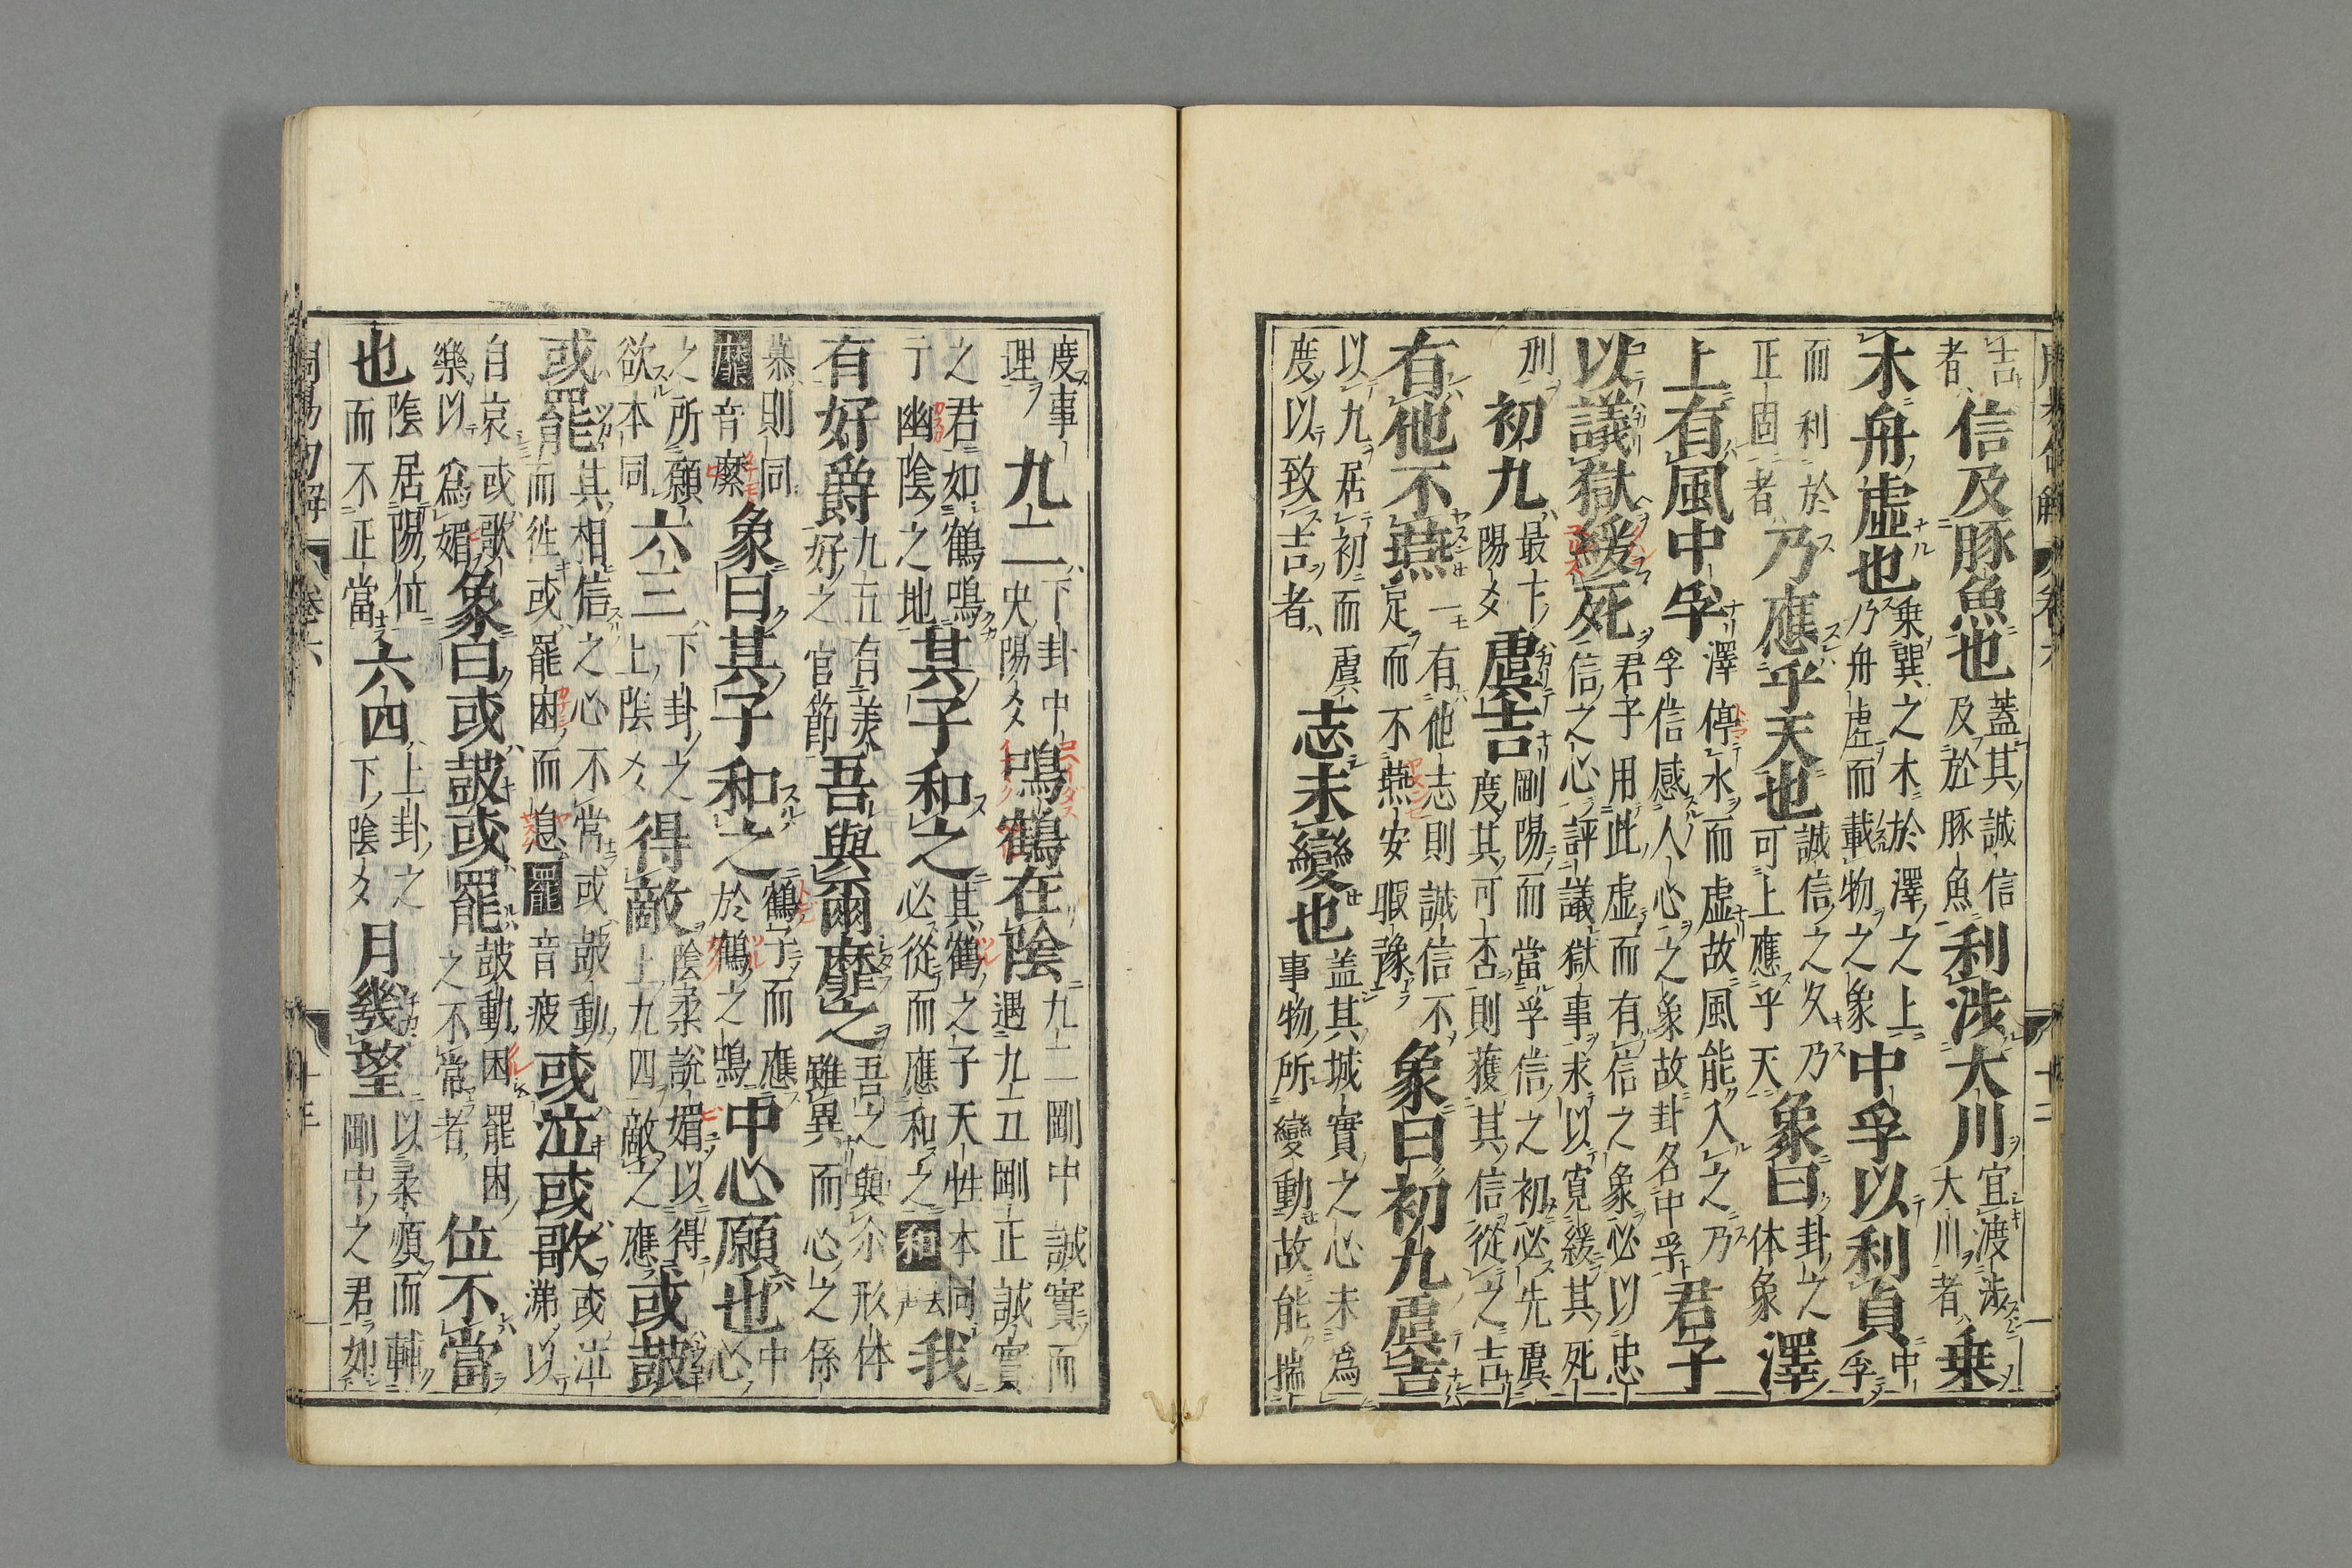 吉者信及豚魚也蓋其誠信及於豚魚利涉大川宜渡涉大川者乗
木舟虛也乗巽之木於澤之上乃舟虛而載物之象中孚以利貞中孚
而利於正固者乃應乎天也誠信之久乃可上應乎天象曰卦之体象澤
上有風中孚澤停水而虛故風能入之乃孚信感人心之象故卦名中孚君子
以議獄緩死君子用此虛而有信之象必以忠信之心評議獄事求以寛緩其死
刑初九最下陽爻虞吉剛陽而當孚信之初必先虞度其可否則獲其信從之吉
有他不燕一有他志則誠信不定而不燕安暇豫象曰初九虞吉
以九居初而虞度以致吉者志未變也盖其城實之心未為事物所變動故能揣
度事理九二下卦中央陽爻鳴鶴在陰九二剛中誠實而遇九五剛正誠實
之君如鶴鳴于幽陰之地其子和之其鶴之子天性本同必從而應和之和去声我
有好爵九五有美好之官節吾與爾靡之吾之與尒形体雖異而心之係
慕則同靡音縻象曰其子和之鶴子而應於鶴之鳴中心願也中心
之所願欲本同六三下卦之上陰爻得敵陰柔說媚以得上九四敵之應或鼓
或罷其相信之心不常或鼓動而徃或罷困而息罷音疲或泣或歌或泣涕以
自哀或歌樂以為媚象曰或鼓或罷鼓動困罷困之不常者位不當
也陰居陽位而不正當六四上卦之下陰爻月幾望以柔順而輔剛中之君如